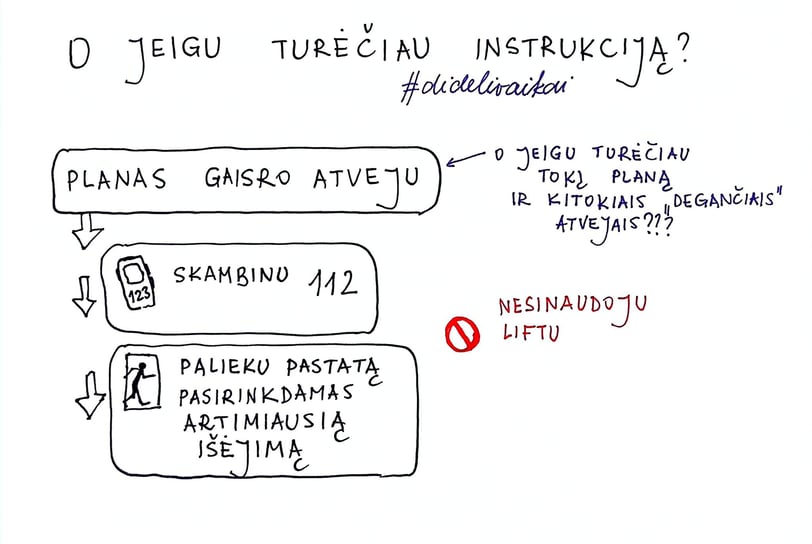 O JEIGU TURĖČIAU INSTRUKCIJĄ?
#didelivaikai
PLANAS GAISRO ATVEJU
O JEIGU TURĖČIAU
TOKĮ PLANĄ
IR KITOKIAIS „DEGANČIAIS"
ATVEJAIS???
123
SKAMBINU 112
NESINAUDOJU
LIFTU
PALIEKU PASTATĄ
PASIRINKDAMAS
ARTIMIAUSIĄ
IŠĖJIMĄ